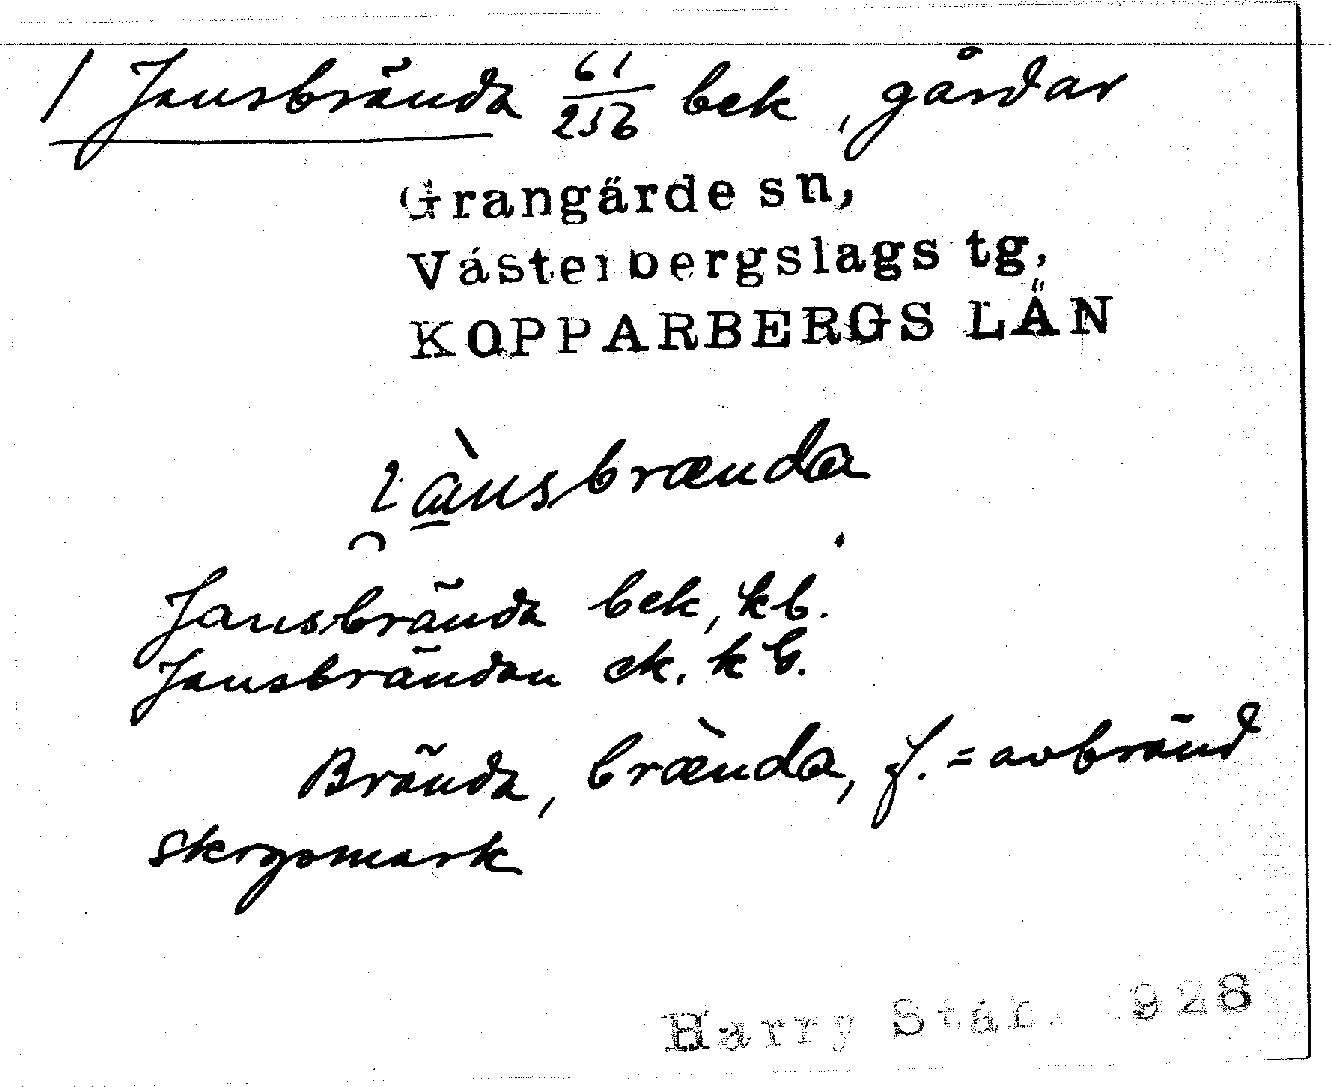 1 Jansbrända 61/256 bek, gårdar
Grangärde sn,
Västerbergslags tg,
KOPPARBERGS LÄN
i̯ànsbrænda
Jansbrända bek, kb.
Jansbrändan ek. kb.
Brända, brænda, f. = avbränd
skogsmark
Harry Ståhl 1928